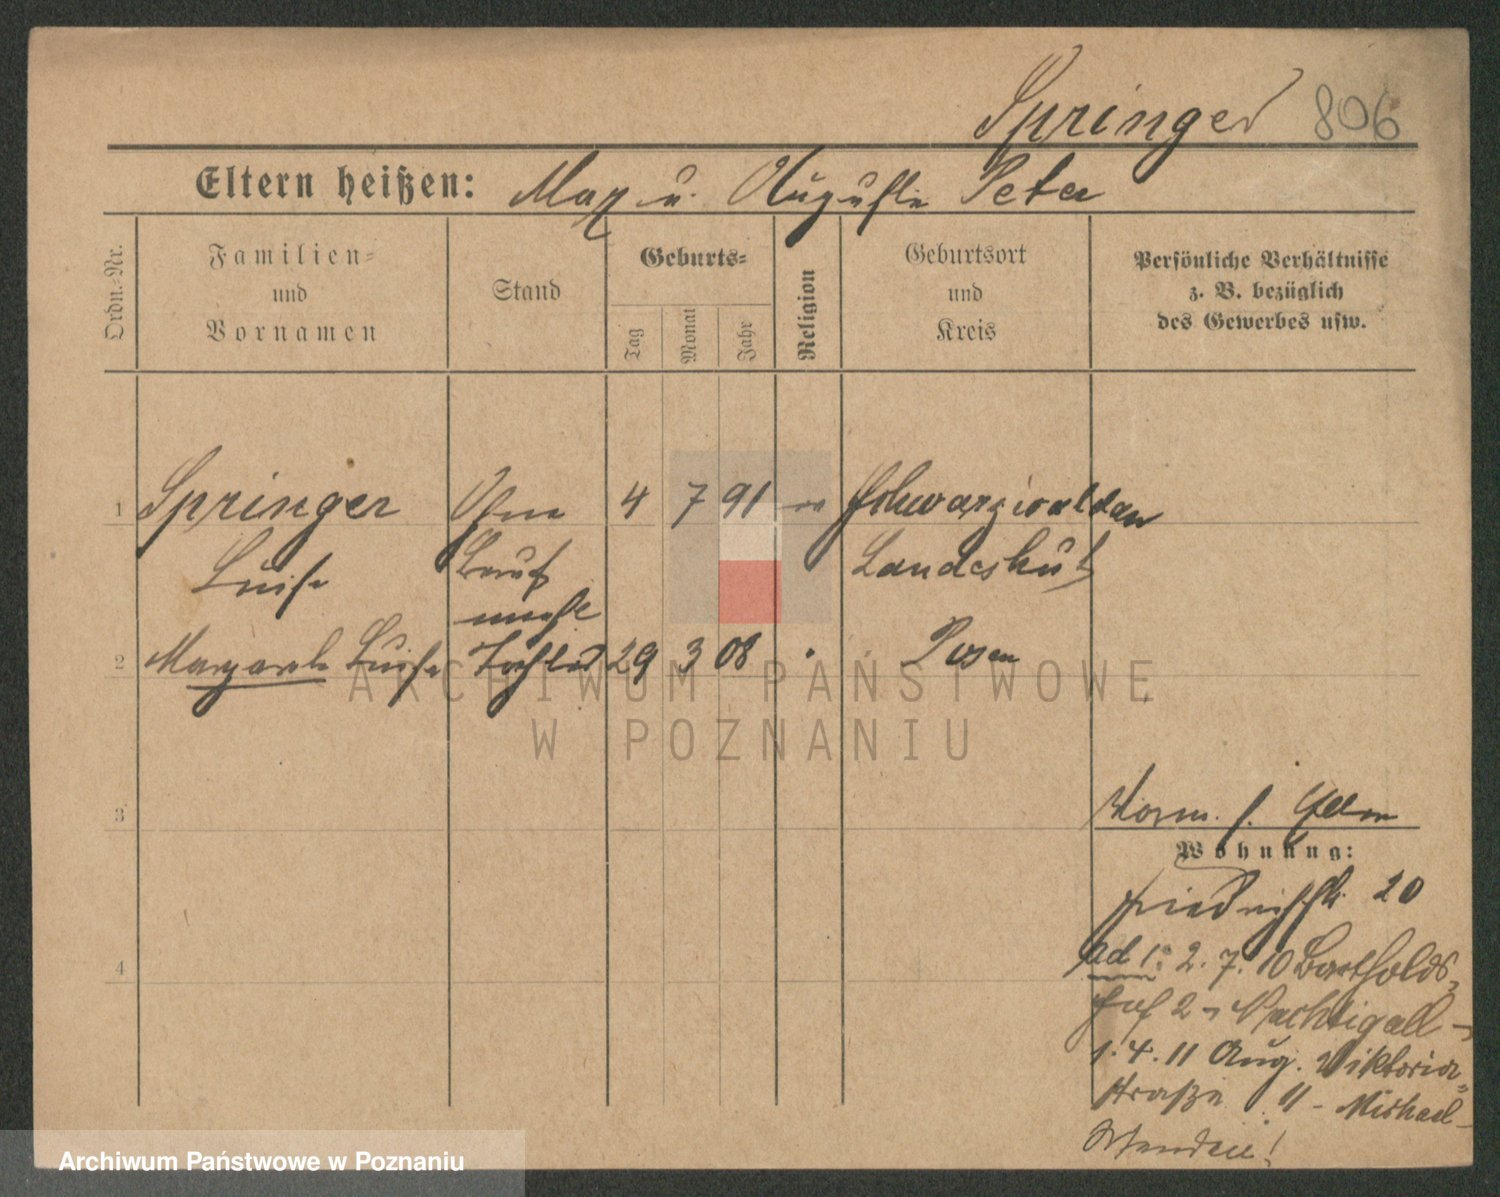 Springer 806
Eltern heißen: Max u. Auguste Peter
Ordn.-Nr.
Familien-
und
Vornamen
Stand
Geburts-
Tag
Monat
Jahr
Religion
Geburtsort
und
Kreis
Persönliche Verhältnisse
z. B. bezüglich
des Gewerbes usw.
1 Springer Ohne 4 7 91 Schwarzwaldau
Luise Beruf Landeshut
2 Margarete Luise Tochter 29 3 08 Posen
3
Vorm. s. Eltern
Wohnung:
Friedrichstr. 20
4
ad 1: 2. 7. 10 Bartholds-
hof 2 - Nachtigall -
1. 4. 11 Aug. Viktoria-
straße 11 - Michael -
Wenden!
ARCHIWUM PAŃSTWOWE
W POZNANIU
Archiwum Państwowe w Poznaniu